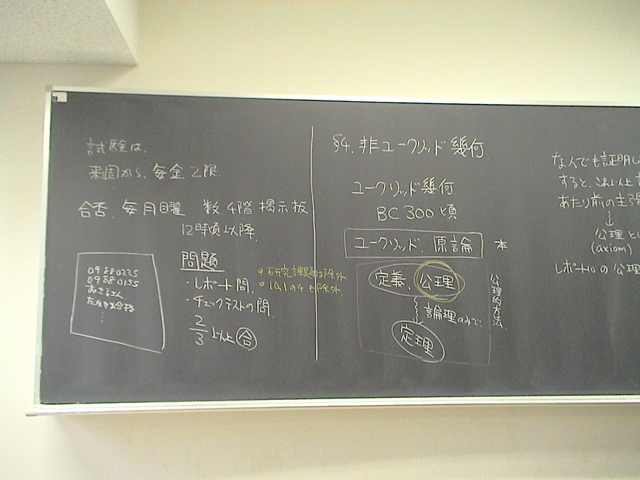 試験は、
来週から、毎金2限
合否 毎月曜 数、4階 掲示板
12時頃以降
問題
・レポート問
・チェックテストの問
2/3 以上 合
09880225
09880155
§4. 非ユークリッド幾何
ユークリッド幾何
BC 300 頃
ユークリッド、原論 本
定義 公理
論理のみで
定理
公理的方法
なんでも証明し
すると、これ以上
あたり前の主張
↓
公理と
(axiom)
レポート10の公理